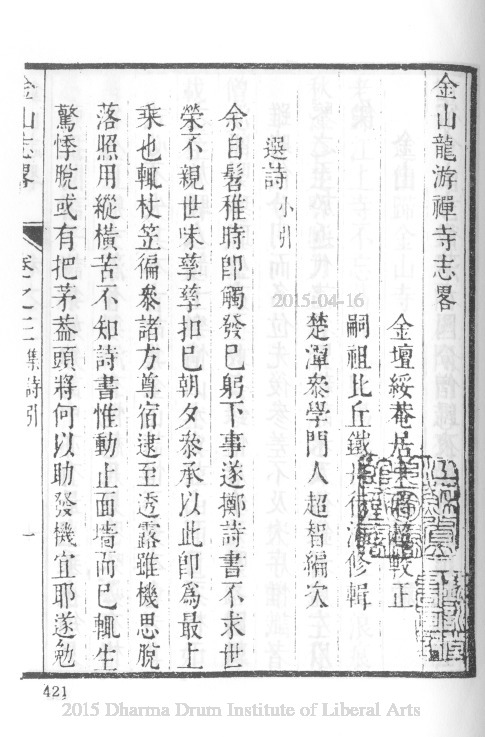 金山龍游禪寺志畧
金壇綏菴居士蔣超較正
嗣祖比丘鐵舟行海修輯
楚潭叅學門人超智編次
選詩小引
余自髫稚時卽觸發巳躬下事遂擲詩書不求世
榮不親世味孳孳扣巳朝夕叅承以此卽為最上
乗也輒杖笠徧叅諸方尊宿逮至透露雖機思脫
落照用縱橫苦不知詩書惟動止面墻而巳輒生
驚悸脫或有把茅葢頭將何以助發機宜耶遂勉
金山志畧 卷之三 集詩引 一
2015-04-16
421
2015 Dharma Drum Institute of Liberal Arts